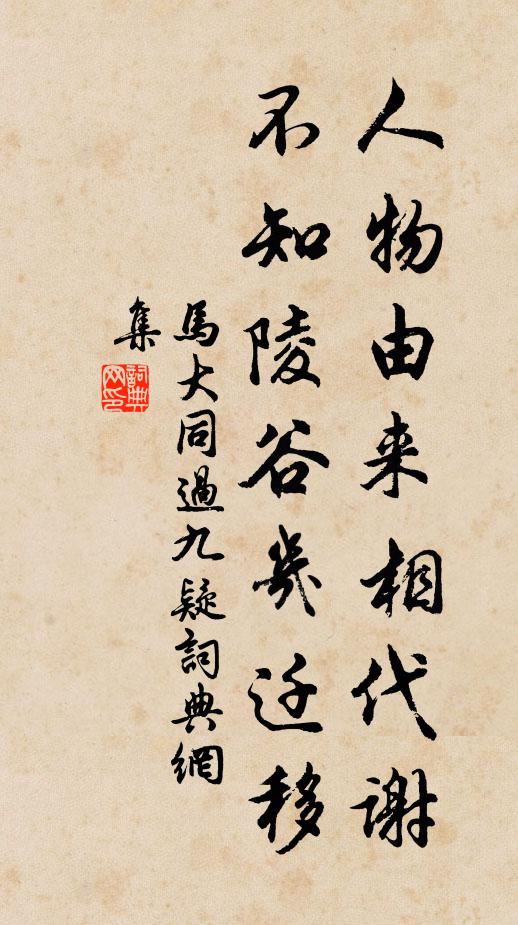 人物由来相代谢
不知陵谷幾迁移
馬大同過九疑詞典網
集
詞典
网印